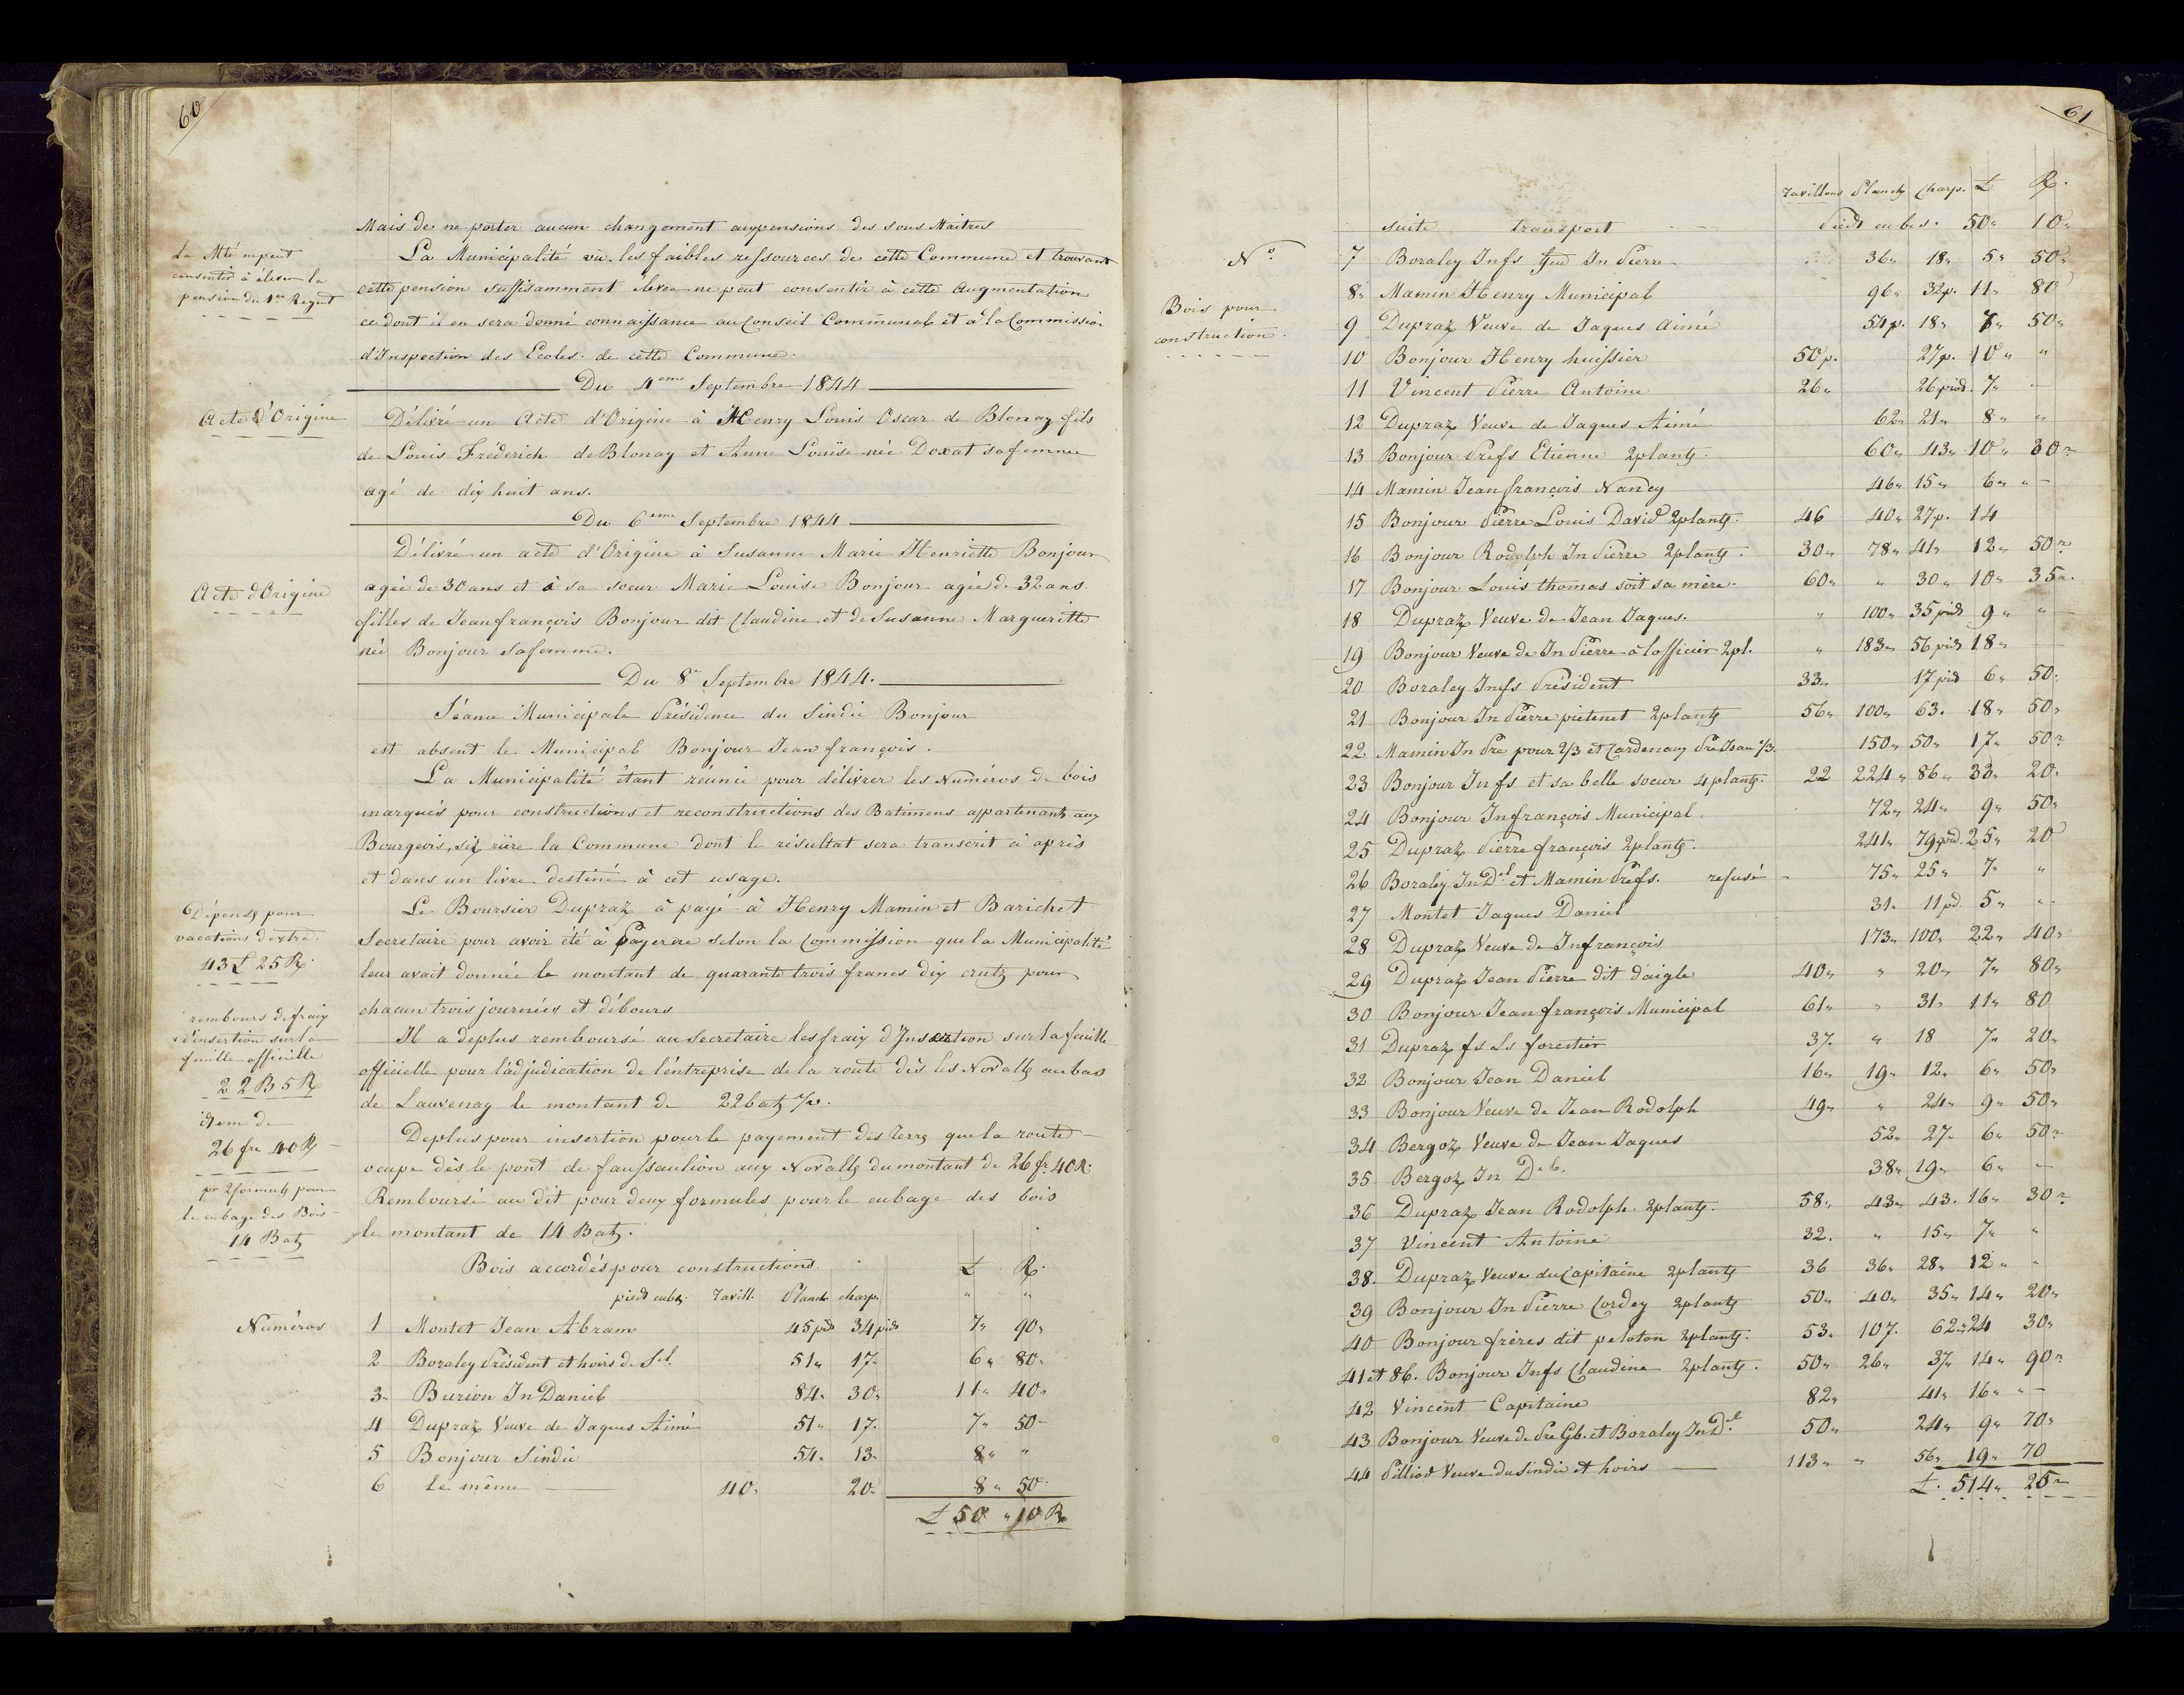 60
Mais de ne porter aucun changement aux pensions des sous Maitres
La Mté ne peut
consentir à élever la
pension du 1er Regent
La Municipalité vu les faibles ressources de cette Commune et trouvant
cette pension suffisamment élevée ne peut consentir à cette augmentation
ce dont il en sera donné connaissance au Conseil Communal et à la Commission
d'Inspection des Ecoles de cette Commune.
Du 4eme Septembre 1844
Acte d'Origine
Délivré un Acte d'Origine à Henry Louis Oscar de Blonay fils
de Louis Fréderich de Blonay et Anne Louïse née Doxat sa femme
agé de dix huit ans.
Du 6eme Septembre 1844
Acte d'Origine
Délivré un acte d'Origine à Susanne Marie Henriette Bonjour
agée de 30 ans et à sa soeur Marie Louise Bonjour agée de 32 ans.
filles de Jean françois Bonjour dit Claudine et de Susanne Margueritte
née Bonjour sa femme.
Du 8e Septembre 1844.
Séance Municipale Présidence du Sindic Bonjour
est absent le Municipal Bonjour Jean françois.
La Municipalité étant réunie pour délivrer les Numéros de bois
marqués pour constructions et reconstructions des Batimens appartenants aux
Bourgeois, siz rière la Commune dont le résultat sera transcrit ci après
et dans un livre destiné à cet usage.
Dépense pour
vacations d'extra.
43 £ 25 R.
Le Boursier Dupraz à payé à Henry Mamin et Barichet
Secretaire pour avoir été à Payerne selon la Commission que la Municipalité
leur avait donnée le montant de quarante trois francs dix crutz pour
chacun trois journées et débours
rembours de fraix
d'insertion sur la
feuille officielle
22 B 5 R
Il a deplus remboursé au Secretaire les fraix d'Insertion sur la feuille
officielle pour l'adjudication de l'entreprise de la route dès les Novalls au bas
de Lauvenay le montant de 22 batz ½.
idem de
26 fr 40 R
Deplus pour insertion pour le payement des terrs que la route
ocupe dès le pont de faussaulion aux Novalls du montant de 26 fr. 40 R.
pr 2 formuls pour
le cubage des Bois
14 Batz
Remboursé au dit pour deux formules pour le cubage des bois
le montant de 14 Batz.
Bois accordés pour constructions. £ R.
pied cubs. Tavill. Planch charp. " "
Numéros 1 Montet Jean Abram 45 pids 34 pids 7" 90"
2 Boraley Président et hoirs de Sel. 51" 17" 6" 80"
3" Burion Jn Daniel 84" 30" 11" 40"
4 Dupraz Veuve de Jaques Aimé 51" 17" 7" 50
5 Bonjour Sindic 54" 13" 8" "
6 Le même 40" 20" 8" 50"
£ 50 " 10 R
61
Tavillons Planch Charp. £ R.
suite transport Pieds cubes. 50" 10"
No
Bois pour
construction
7 Boraley Jnfs feu Jn Pierre 36" 18" 5" 50"
8" Mamin Henry Municipal 96" 32 p. 11" 80
9 Dupraz Veuve de Jaques Aimé 54 p. 18" 7" 50"
10 Bonjour Henry huissier 50 p. 27 p. 10" "
11 Vincent Pierre Antoine 26" 26 pied 7" -
12 Dupraz Veuve de Jaques Aimé 62" 21" 8" "
13 Bonjour Prefs Etienne 2 plants 60" 43" 10" 30"
14 Mamin Jean françois Nancy 46" 15" 6" "
15 Bonjour Pierre Louis David 2 plants. 46 40" 27 p. 14
16 Bonjour Rodolph Jn Pierre 2 plants. 30" 78" 41" 12" 50"
17 Bonjour Louis thomas soit sa mère 60" " 30" 10" 35"
18 Dupraz Veuve de Jean Jaques. " 100" 35 pids 9" "
19 Bonjour Veuve de Jn Pierre à l'officier 2 pl. " 183" 56 pids 18"
20 Boraley Jnfs Président 33" 17 pid 6" 50"
21 Bonjour Jn Pierre pietenet 2 plants 56" 100" 63. 18" 50"
22 Mamin Jn Pre pour 2/3 et Cardenaux Pre Isac 1/3. 150" 50" 17" 50"
23 Bonjour Jnfs et sa belle soeur 4 plants. 22 224" 86" 33" 20"
24 Bonjour Jn françois Municipal. 72" 24" 9" 50"
25 Dupraz Pierre françois 2 plants. 241" 79 pid. 25" 20
26 Boraley Jn Del et Mamin Prefs. refusé 75" 25" 7" "
27 Montet Jaques Daniel 31" 11 pd. 5" "
28 Dupraz Veuve de Jn françois 173" 100" 22" 40"
29 Dupraz Jean Pierre dit d'aigle 40" " 20" 7" 80"
30 Bonjour Jean françois Municipal 61" " 31" 11" 80
31 Dupraz fs Ls forestier 37. " 18 7" 20"
32 Bonjour Jean Daniel 16" 19" 12" 6" 50"
33 Bonjour Veuve de Jean Rodolph 49" " 24" 9" 50"
34 Bergoz Veuve de Jean Jaques 52" 27" 6" 50"
35 Bergoz Jn Del. 38" 19" 6" -
36 Dupraz Jean Rodolph. 2 plants. 58" 43" 43. 16" 30"
37 Vincent Antoine 32. " 15" 7" "
38. Dupraz Veuve du Capitaine 2 plants 36 36" 28" 12" "
39 Bonjour Jn Pierre Cordey 2 plants 50" 40" 35" 14" 20"
40 Bonjour frères dit peloton 2 plants. 53. 107. 62" 24 30"
41 et 86. Bonjour Jnfs Claudine 2 plants. 50" 26" 37" 14" 90"
42 Vincent Capitaine 82" 41" 16" "
43 Bonjour Veuve de Pre Gb. et Boraley Jn Del 50" 24" 9" 70"
44 Pilliod Veuve du Sindic et hoirs 113" " 56" 19" 70
£. 514" 25"